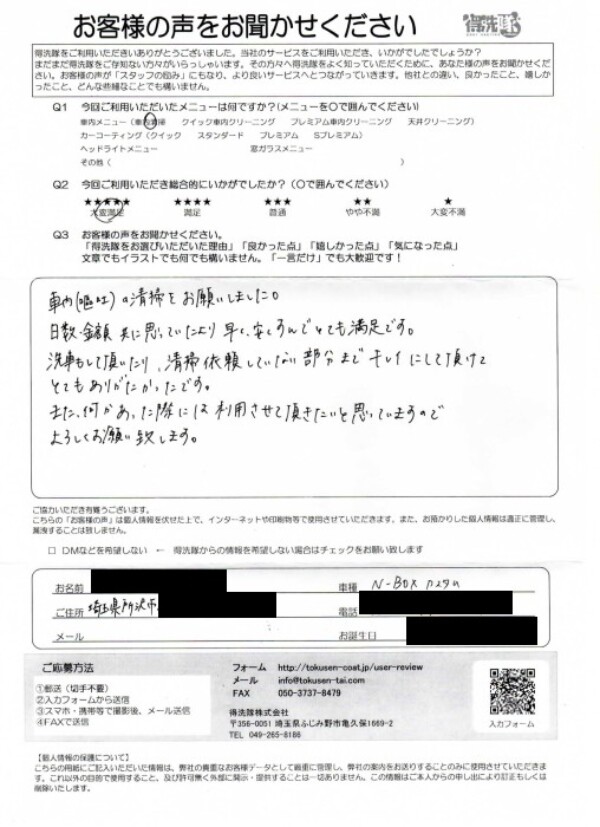 お客様の声をお聞かせください 得洗隊
得洗隊をご利用いただきありがとうございました。当社のサービスをご利用いただき、いかがでしたでしょうか？
まだまだ得洗隊をご存知ない方々がいらっしゃいます。その方々へ得洗隊をよく知っていただくために、あなた様の声をお聞かせくださ
い。お客様の声が「スタッフの励み」にもなり、より良いサービスへとつながっていきます。他社との違い、良かったこと、嬉しか
ったこと、どんな些細なことでも構いません。
Q1 今回ご利用いただいたメニューは何ですか？（メニューを〇で囲んでください）
車内メニュー（車内清掃 クイック車内クリーニング プレミアム車内クリーニング 天井クリーニング）
カーコーティング（クイック スタンダード プレミアム Sプレミアム）
ヘッドライトメニュー 窓ガラスメニュー
その他（ ）
Q2 今回ご利用いただき総合的にいかがでしたか？（〇で囲んでください）
★★★★★ ★★★★ ★★★ ★★ ★
大変満足 満足 普通 やや不満 大変不満
Q3 お客様の声をお聞かせください。
「得洗隊をお選びいただいた理由」「良かった点」「嬉しかった点」「気になった点」
文章でもイラストでも何でも構いません。「一言だけ」でも大歓迎です！
車内(嘔吐)の清掃をお願いしました。
日数・金額 共に思っていたより早く、安くすんでとても満足です。
洗車もして頂いたり、清掃依頼していない部分までキレイにして頂けて
とてもありがたかったです。
また、何かあった際には利用させて頂きたいと思っていますので
よろしくお願い致します。
ご協力いただき有難うございます。
こちらの「お客様の声」は個人情報を伏せた上で、インターネットや印刷物等で使用させていただきます。また、お預かりした個人情報は適正に管理し、
漏洩することは致しません。
□ DMなどを希望しない ← 得洗隊からの情報を希望しない場合はチェックをお願い致します
お名前 車種 N-BOX カスタム
ご住所 埼玉県所沢市 電話
メール お誕生日
ご応募方法
①郵送（切手不要）
②入力フォームから送信
③スマホ・携帯等で撮影後、メール送信
④FAXで送信
フォーム http://tokusen-coat.jp/user-review
メール info@tokusen-tai.com
FAX 050-3737-8479
得洗隊株式会社
〒356-0051 埼玉県ふじみ野市亀久保1669-2
TEL 049-265-8186
入力フォーム
【個人情報の保護について】
こちらの用紙にご記入いただいた情報は、弊社の貴重なお客様データとして厳重に管理し、弊社の案内をお送りすることのみに使用させていただきま
す。これ以外の目的で使用すること、及び許可無く外部に開示・提供することは一切ありません。この情報はご本人からの申し出により訂正もしくは
削除いたします。